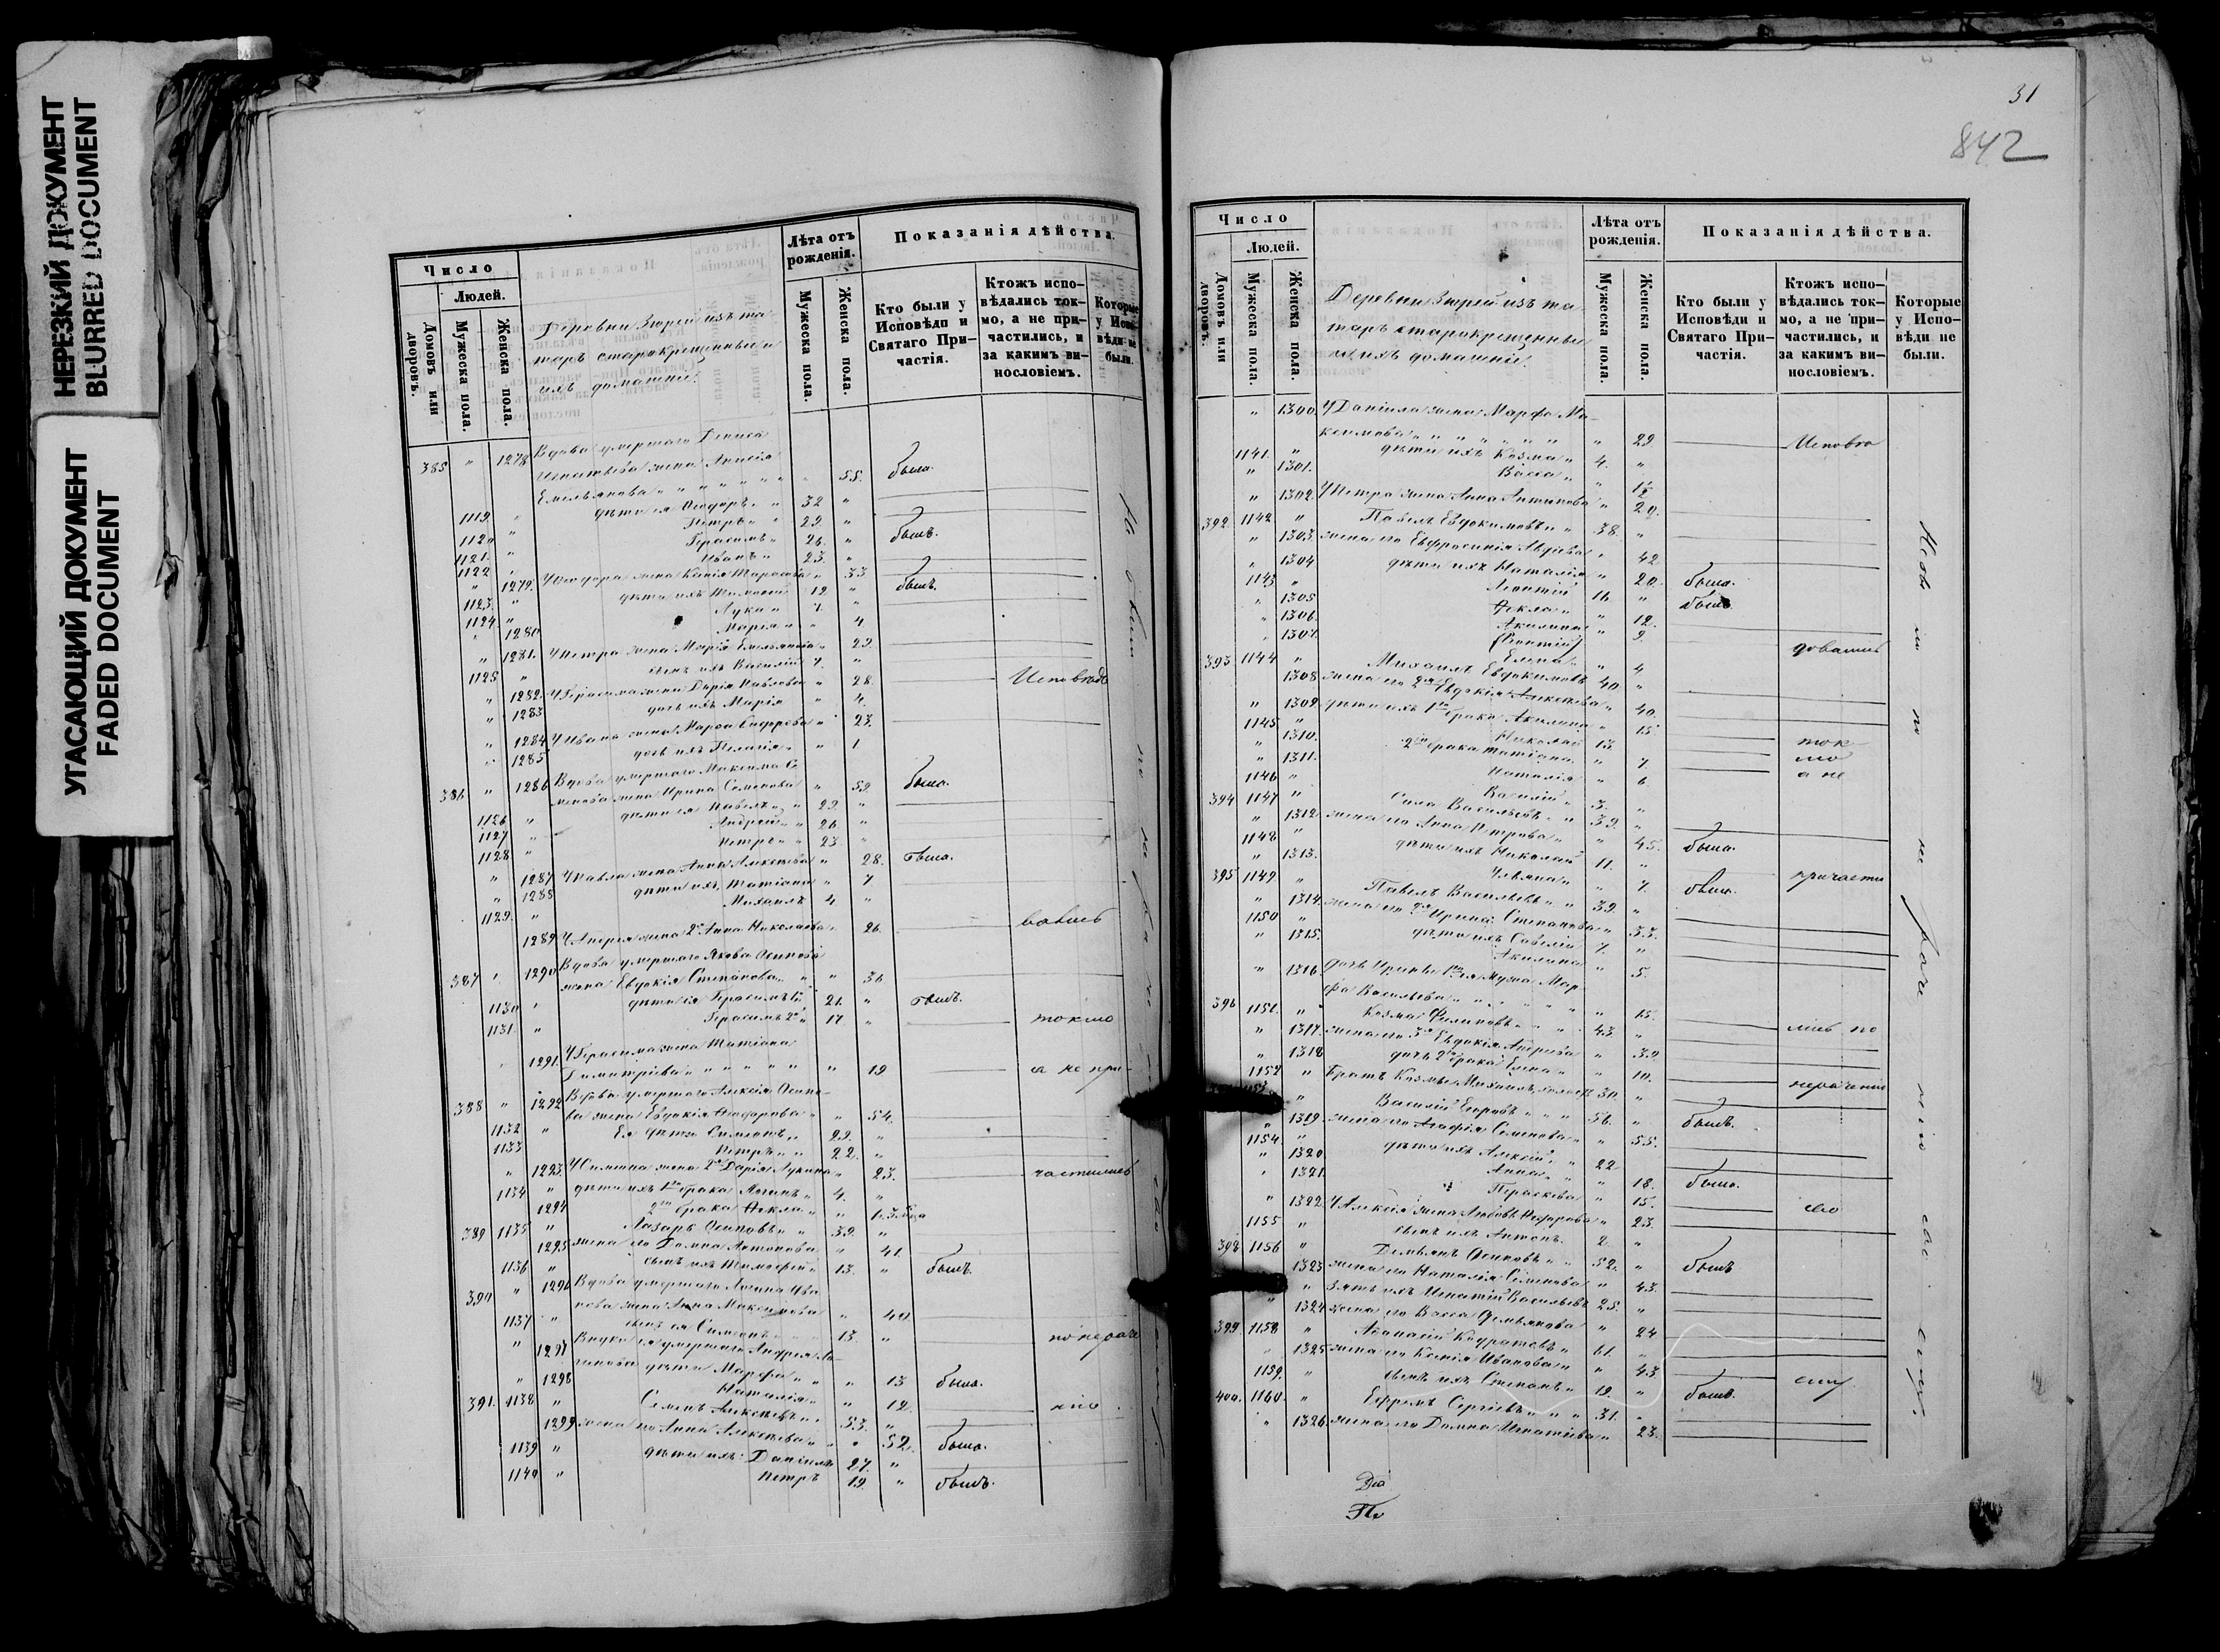 НЕРЕЗКИЙ ДОКУМЕНТ
BLURRED DOCUMENT
УГАСАЮЩИЙ ДОКУМЕНТ
FADED DOCUMENT
Число
Людей.
Домовъ или дворовъ.
Мужеска пола.
Женска пола.
Деревни Зюрей изъ та-
таръ старокрещенные и
ихъ домашніе.
Лѣта отъ рожденія.
Мужеска пола.
Женска пола.
Показанія дѣйства.
Кто были у Исповѣди и Святаго Причастія.
Ктожъ исповѣдались токмо, а не причастились, и за какимъ винословіемъ.
Которые у Исповѣди не были.
385 " 1278 Вдова умершаго Дениса
Игнатьева жена Анисія
Емельянова " 55. была.
1119. " дѣти ея Ѳеодоръ " 32 "
1120 " Петръ " 29. "
1121. " Герасимъ " 26. " былъ.
1122 " Иванъ " 23. "
" 1279. У Ѳеодора жена Ксенія Тарасова " 33
1123. " дѣти ихъ Тимоѳей 12 " былъ.
1124. " Лука " 7. "
" 1280 Марія " " 4
" 1281. У Петра жена Марія Емельянова " 29.
1125 " сынъ ихъ Василій 7. "
" 1282. У Герасима жена Дарія Павлова " 28. Исповѣдо
" 1283 дочь ихъ Марія " 4.
" 1284 У Ивана жена Марѳа " 23.
" 1285 дочь ихъ Пелагія " " 1
386 " 1286 Вдова умершаго Максима Се-
менова жена Ирина Семенова " 59 была.
1126 " дѣти ея Павелъ " 29. "
1127 " Андрей " " 26. "
1128 " Петръ " " 23. "
" 1287 У Павла жена Анна Алексѣева " 28. была.
" 1288 дѣти ихъ Татіана " 7
1129. " Михаилъ 4. "
1289 У Андрея жена 2я Анна Николаева " 26. вались
387 " 1290 Вдова умершаго Якова Осипова
жена Евдокія Степанова " " 36
1130 " дѣти ея Герасимъ 1й 21. " былъ.
1131. " Герасимъ 2й " 17. " токмо
" 1291. У Герасима жена Татіана
Димитріева " " 19 а не при-
388 " 1292 Вдова умершаго Алексія Осипо-
ва жена Евдокія Ѳеодорова " " 54.
1132 " Ея дѣти Симеонъ " 29. "
1133 Петръ " " 22. "
" 1293 У Симеона жена 2я Дарія Лукина " 23. частились
1134 " дѣти ихъ 1го брака Логинъ " 4. "
1294 2го брака Ѳекла "
389 1135 " Лазарь Осиповъ " " 39. "
1295 жена его Домна Антонова " 41.
1136 " сынъ ихъ Тимоѳей " 13. " былъ.
390 " 1296 Вдова умершаго Логина Ива-
нова жена Анна Максимова " 40.
1137 " сынъ ея Симеонъ " 13. "
" 1297 Внуки ея умершаго Андрея Ло-
гинова дѣти Марѳа " " 13 была. по нераче
" 1298 Наталія " " 12.
391. 1138 " Семенъ Алексѣевъ " 53. " нію
1299 жена его Анна Алексѣева " " 52. была.
1139 " дѣти ихъ: Даніилъ 27. "
1140 " Петръ 19. " былъ.
31
842
Число
Людей.
Домовъ или дворовъ.
Мужеска пола.
Женска пола.
Деревни Зюрей изъ та-
таръ старокрещенные
и ихъ домашніе.
Лѣта отъ рожденія.
Мужеска пола.
Женска пола.
Показанія дѣйства.
Кто были у Исповѣди и Святаго Причастія.
Ктожъ исповѣдались токмо, а не причастились, и за какимъ винословіемъ.
Которые у Исповѣди не были.
" 1300 У Даніила жена Марѳа Ма-
ксимова " " 29 Исповѣ
1141. " дѣти ихъ Козма " 4. "
" 1301. Васса " " 1½
" 1302. У Петра жена Анна Антипова " 20.
392. 1142 " Павелъ Евдокимовъ " " 38. "
" 1303. жена его Евфросинія Авдіева " 42
" 1304 дѣти ихъ Наталія " 20. была.
1143 " Леонтій 16. " былъ
" 1305 Ѳекла " " 12.
" 1306. Акилина " 9.
" 1307. (Леонтій) Елена " " 4 довались
393. 1144 " Михаилъ Евдокимовъ 40. "
1308 жена его 2я Евдокія Алексѣева " 40.
" 1309 дѣти ихъ 1го брака Акилина " 15.
1145 " Николай 13. " ток
" 1310. 2го брака Татіана " 7. мо
" 1311. Наталія " 6 а не
1146 " Василій " 3. "
394 1147 " Сила Васильевъ " " 39. "
" 1312. жена его Анна Петрова " " 45. была.
1148 " дѣти ихъ Николай 11. "
" 1313. Ульяна " " 7. была. причасти
395 1149 " Павелъ Васильевъ " " 39. "
" 1314. жена его 2я Ирина Степанова " 33.
1150 " дѣти ихъ Савелій 7. "
" 1315. Акилина " 5.
" 1316. Дочь Ирины 1го ея мужа Мар-
ѳа Васильева " " 15.
396 1151. " Козма Филиповъ " " 43. " лись по
" 1317. жена его 3я Евдокія Андреева " 39.
" 1318 дочь 2го брака Елена " " 10.
1152 " Братъ Козмы Михаилъ холостъ 30. " нераченію
" Василій Егоровъ " " 56. " былъ.
" 1319 жена его Агафія Семенова " " 55.
1154 " дѣти ихъ Алексій " " 22. "
" 1320 Анна " " 18. была.
" 1321. Параскева " 15.
" 1322. У Алексія жена Любовь Ѳедорова " 23. сво
1155 " сынъ ихъ Антонъ. 2. "
398 1156 " Демьянъ Осиповъ " " 52. " былъ
" 1323 жена его Наталія Семенова " 43.
" Зять ихъ Игнатій Васильевъ 25. "
" 1324 жена его Васса Демьянова " 24
399 1158 " Аѳанасій Кодратовъ " 61. "
" 1325 жена его Ксенія Иванова " " 43.
1159. " сынъ ихъ Степанъ " 19. " былъ. ему
400. 1160. " Ефремъ Сергіевъ " " 31. "
" 1326. жена его Домна Игнатіева " 23.